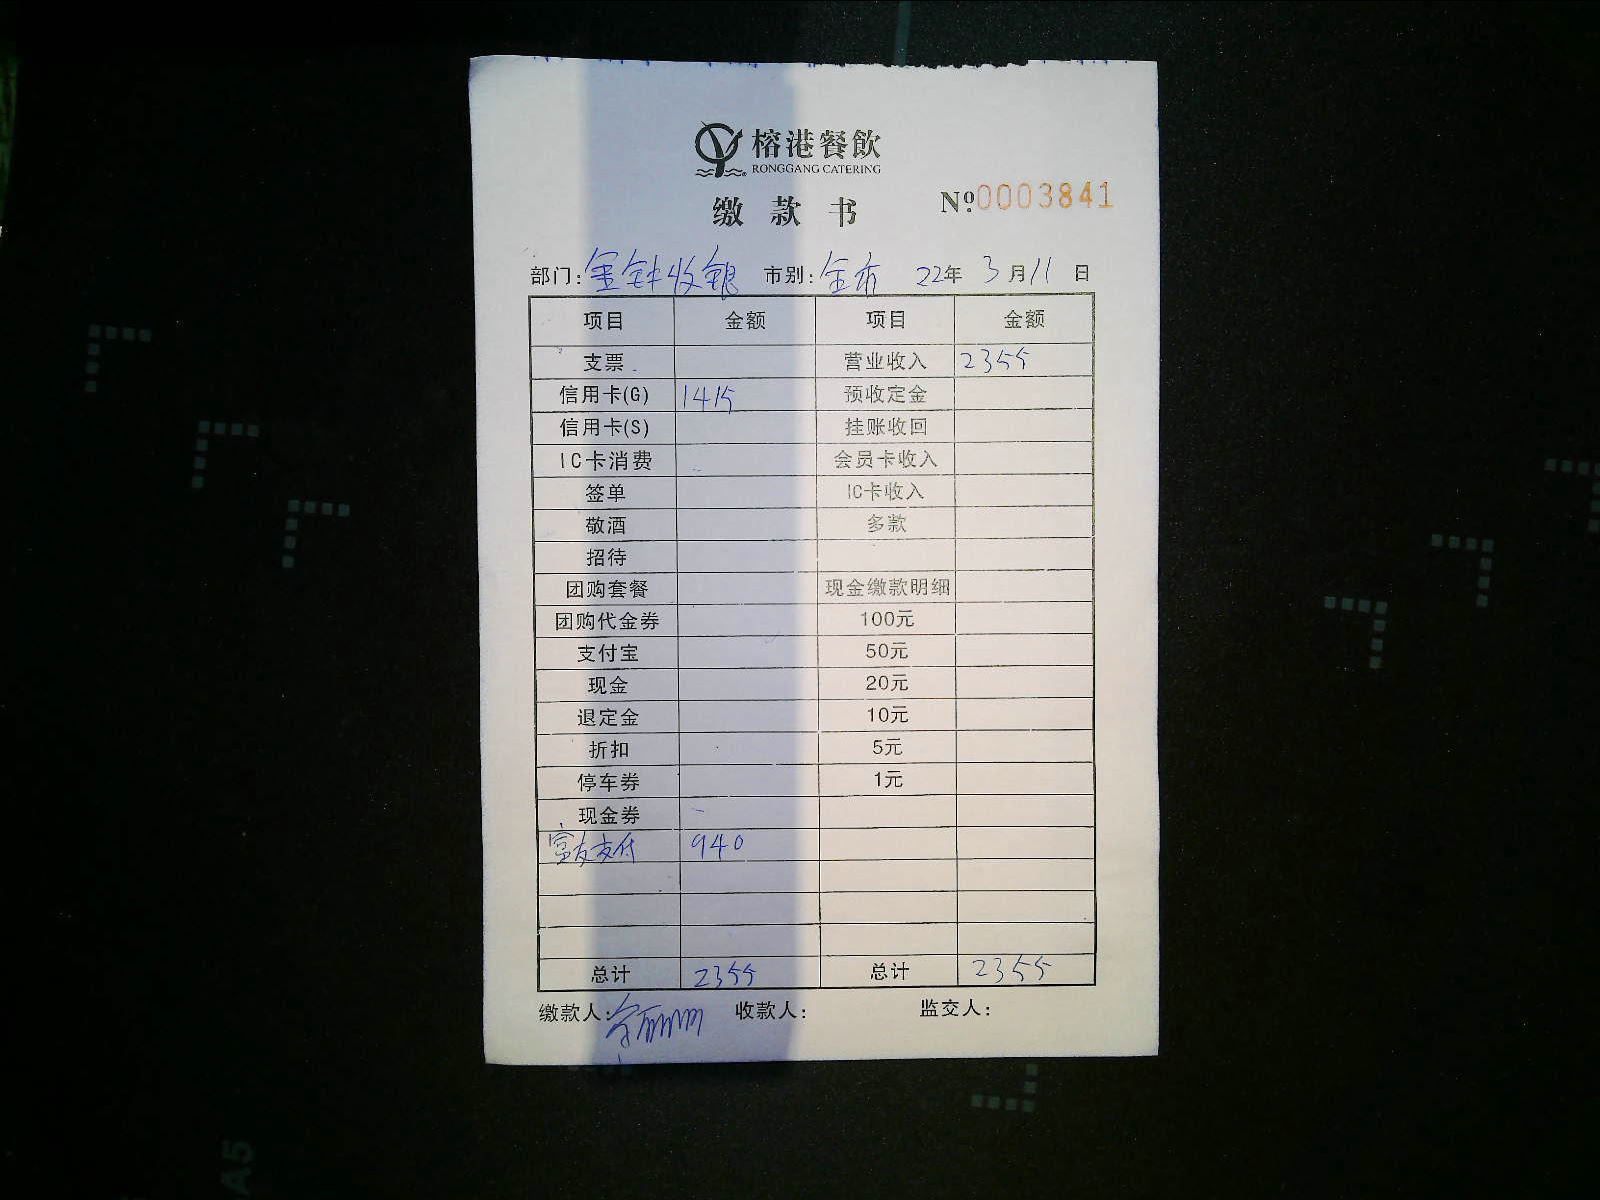 榕港餐飲
RONGGANG CATERING
缴款书 Nº.0003841
部门: 金钟收银 市别: 全市 22年 3月11日
项目 金额 项目 金额
支票 营业收入 2355
信用卡(G) 1415 预收定金
信用卡(S) 挂账收回
IC卡消费 会员卡收入
签单 IC卡收入
敬酒 多款
招待
团购套餐 现金缴款明细
团购代金券 100元
支付宝 50元
现金 20元
退定金 10元
折扣 5元
停车券 1元
现金券
富友支付 940
总计 2355 总计 2355
缴款人: 收款人: 监交人:
A5